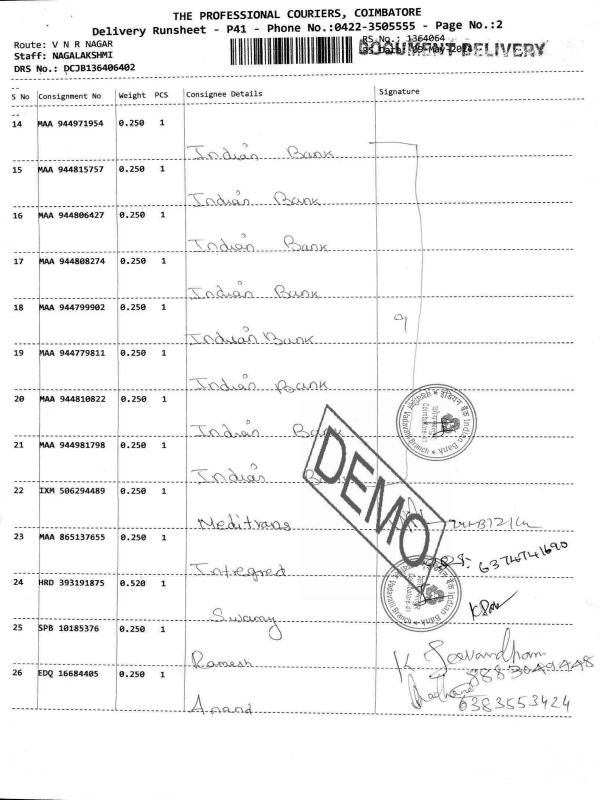 THE PROFESSIONAL COURIERS, COIMBATORE
Delivery Runsheet - P41 - Phone No.:0422-3505555 - Page No.:2
Route: V N R NAGAR
RS No.: 1364064
DOCUMENT DELIVERY
Staff: NAGALAKSHMI
DRS No.: DCJB136406402
S No Consignment No Weight PCS Consignee Details Signature
14 MAA 944971954 0.250 1
Indian Bank
15 MAA 944815757 0.250 1
Indian Bank
16 MAA 944806427 0.250 1
Indian Bank
17 MAA 944808274 0.250 1
Indian Bank
18 MAA 944799902 0.250 1
9
Indian Bank
19 MAA 944779811 0.250 1
Indian Bank
20 MAA 944810822 0.250 1
Indian Bank
21 MAA 944981798 0.250 1
Indian Bank
22 IXM 506294489 0.250 1
Meditrans
DEMO
23 MAA 865137655 0.250 1
6374741690
Integred
24 HRD 393191875 0.520 1
Swamy
25 SPB 10185376 0.250 1
Ramesh
8883049448
26 EDQ 16684405 0.250 1
6383553424
Anand